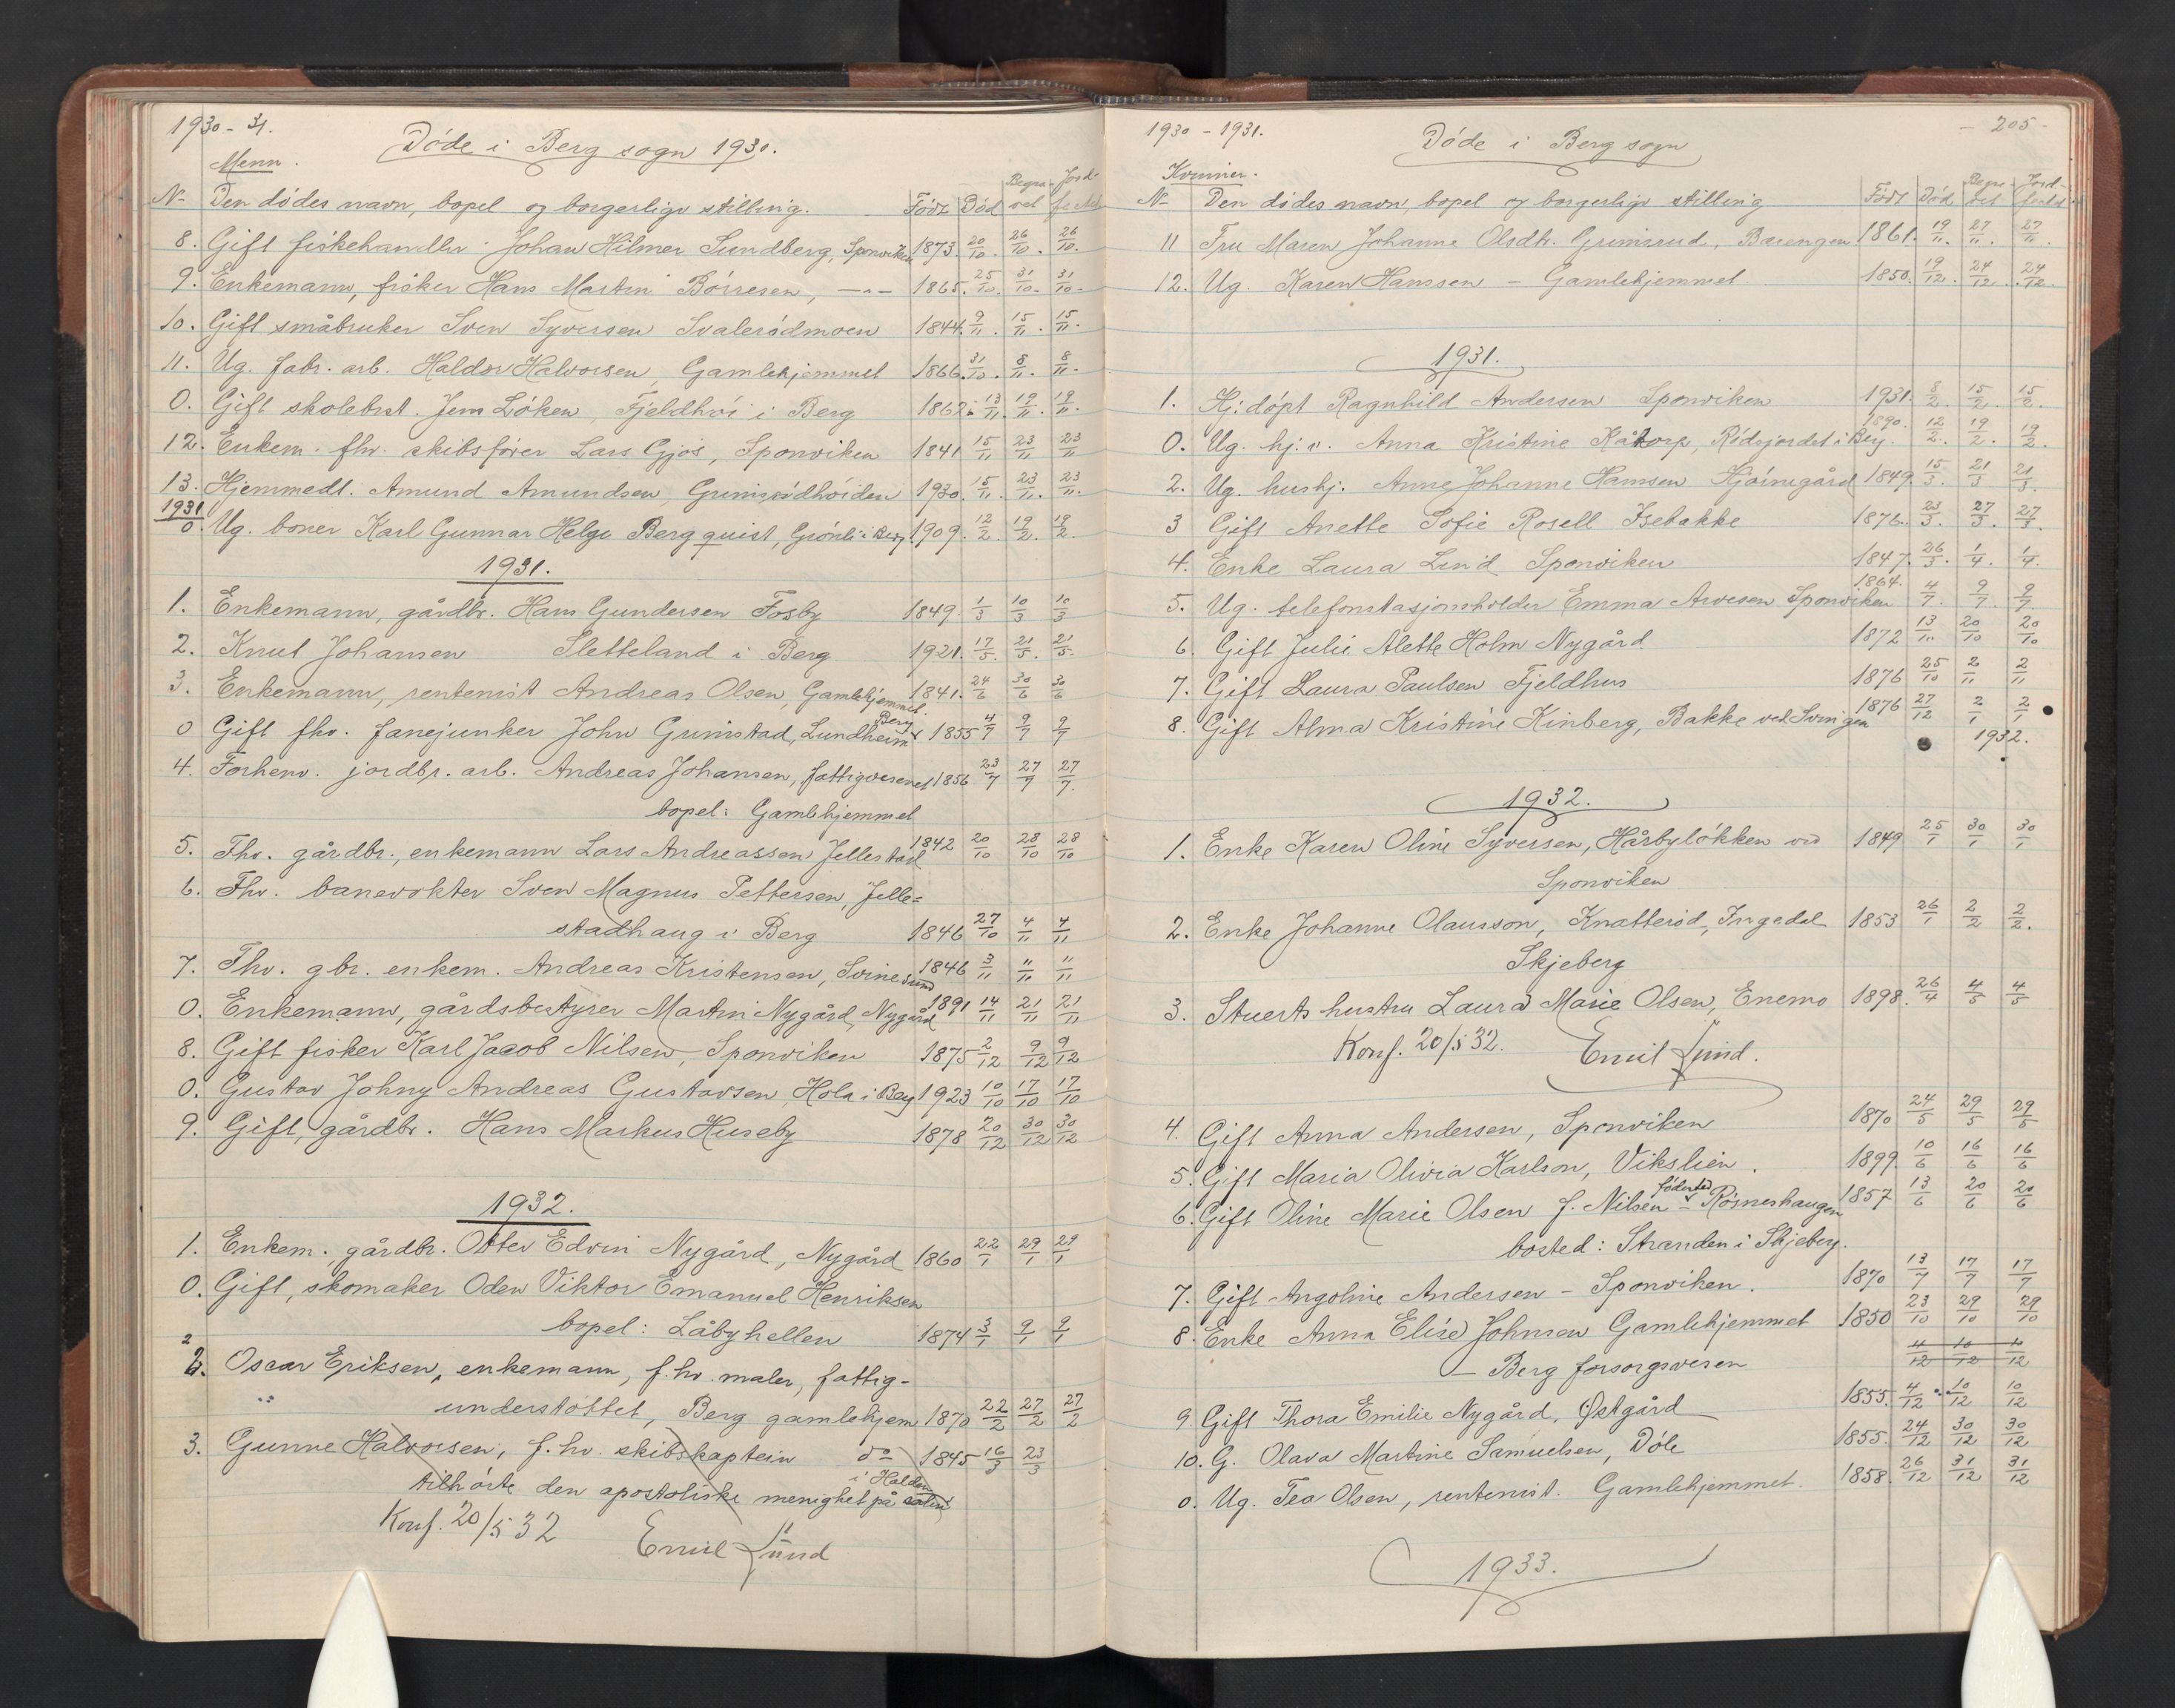 1930 - 31.
Døde i Berg sogn 1930.
Menn.
No Den dødes navn, bopel og borgerlige stilling. Født Død Begra-vet Jord-festet
8. Gift fiskehandler Johan Hilmer Sundberg, Sponviken 1873. 20/10. 26/10. 26/10.
9. Enkemann, fisker Hans Martin Børresen, -"- 1865. 25/10. 31/10. 31/10.
10. Gift småbruker Sven Syversen Svalerødmoen 1844. 9/11. 15/11. 15/11.
11. Ug. fabr. arb. Haldor Halvorsen, Gamlehjemmet 1866. 31/10. 8/11. 8/11.
0. Gift skolebest. Jens Løken, Fjeldhøi i Berg 1862. 13/11. 19/11. 19/11.
12. Enkem. fhv. skibsfører Lars Gjøs, Sponviken 1841 15/11 23/11 23/11
13. Hjemmedt. Amund Amundsen, Grimsrødhøiden 1930. 15/11. 23/11. 23/11.
1931
0. Ug. boner Karl Gunnar Helge Bergquist, Grønli i Berg 1909. 12/2. 19/2. 19/2.
1931.
1. Enkemann, gårdbr. Hans Gundersen Fosby 1849. 1/3 10/3 10/3
2. Knut Johansen Sletteland i Berg 1921. 17/5. 21/5. 21/5.
3. Enkemann, rentenist Andreas Olsen, Gamlehjemmet. 1841. 24/6 30/6 30/6
0 Gift fhv. fanejunker John Grimstad, Lundheim Berg 1855 4/7 9/7 9/7
4. Forhenv. jordbr. arb. Andreas Johansen, fattigvesenet 1856 23/7 27/7 27/7.
bopel: Gamlehjemmet
5. Fhv. gårdbr., enkemann Lars Andreassen Jellestad 1842 20/10 28/10 28/10
6. Fhv. banevokter Sven Magnus Pettersen, Jelle-
stadhaug i Berg 1846 27/10 4/11 4/11
7. Fhv. gbr. enkem. Andreas Kristensen, Svinesund 1846 3/11 11/11 11/11
0. Enkemann, gårdsbestyrer Martin Nygård, Nygård 1891 14/11 21/11 21/11
8. Gift fisker Karl Jacob Nilsen, Sponviken 1875 2/12 9/12 9/12
0. Gustav Johny Andreas Gustavsen, Hola i Berg 1923 10/10 17/10 17/10
9. Gift, gårdbr. Hans Markus Huseby 1878 20/12 30/12 30/12
1932.
1. Enkem., gårdbr. Otter Edvin Nygård, Nygård 1860 22/1 29/1 29/1
0. Gift, skomaker Oden Viktor Emanuel Henriksen
bopel: Låbyhellen 1874 3/1 9/1 9/1
2
2. Oscar Eriksen, enkemann, f.hv. maler, fattig-
understøttet, Berg gamlehjem 1870 22/2 27/2 27/2
3. Gunne Halvorsen, f.hv. skibskaptein do 1845 16/3 23/3
tilhørte den apostoliske menighet på i Halden
Konf. 20/5 32 Emil Lund
1930 - 1931. Døde i Berg sogn - 205 -
Kvinner.
No Den dødes navn, bopel og borgerlige stilling Født Død Begra-vet Jord-festet
11 Fru Maren Johanne Olsdtr. Grimsrud, Barengen 1861. 19/11. 27/11. 27/11.
12. Ug. Karen Hanssen - Gamlehjemmet. 1850. 19/12. 24/12. 24/12.
1931.
1. Hj:døpt Ragnhild Andersen Sponviken 1931. 8/2. 15/2. 15/2.
0. Ug. hj. v. Anna Kristine Kåtorp, Rødsjordet i Berg. 1890. 12/2. 19/2. 19/2.
2. Ug. hushj. Anne Johanne Hansen Kjøinegård 1849. 15/3. 21/3 21/3.
3 Gift Anette Sofie Rosell Isebakke 1876. 23/3. 27/3. 27/3.
4. Enke Laura Lind Sponviken 1847. 26/3. 1/4. 1/4.
5. Ug. telefonstasjonsholder Emma Arvesen Sponviken 1864. 4/7. 9/7 9/7.
6. Gift Julie Alette Holm Nygård 1872 13/10 20/10 20/10
7. Gift Laura Paulsen Fjeldhus 1876 25/10 2/11 2/11
8. Gift Alma Kristine Kinberg, Bakke ved Svingen 1876 27/12 2/1 2/1
1932.
1932.
1. Enke Karen Oline Syversen, Hårbyløkken ved 1849 25/1 30/1 30/1
Sponviken
2. Enke Johanne Olausson, Knatterød, Ingedal 1853 26/1 2/2 2/2.
Skjeberg
3. Stuerts hustru Laura Marie Olsen, Enemo 1898. 26/4 4/5 4/5
Konf. 20/5 32. Emil Lund.
4. Gift Anna Andersen, Sponviken 1870 24/5 29/5 29/5
5. Gift Maria Olivia Karlson, Vikslien. 1899. 10/6 16/6 16/6
6. Gift Oline Marie Olsen f. Nilsen - fødested Røsneshaugen 1857 13/6 20/6 20/6
bosted: Stranden i Skjeberg.
7. Gift Angoline Andersen - Sponviken. 1870 13/7 17/7 17/7
8. Enke Anna Elise Johnsen Gamlehjemmet 1850 23/10 29/10 29/10
- Berg forsorgsvesen 4/12 10/12 10/12
9. Gift Thora Emilie Nygård, Østgård 1855. 4/12 10/12 10/12
10. G. Olava Martine Samuelsen, Døle 1855. 24/12 30/12 30/12
0. Ug. Tea Olsen, rentenist. Gamlehjemmet. 1858. 26/12 31/12 31/12
1933.